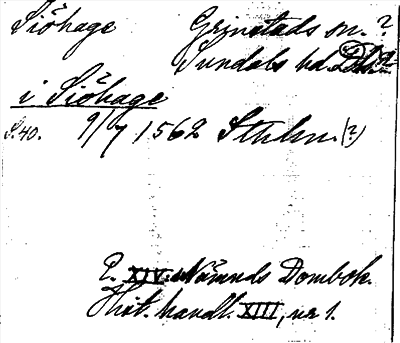 Siöhage Grinstads sn. ?
Sundals hd.
i Siöhage
S. 40. 9/7 1562 Sthlm. (?)
E. XIV. Nämnds Dombok.
Hist. handl. XIII, nr 1.